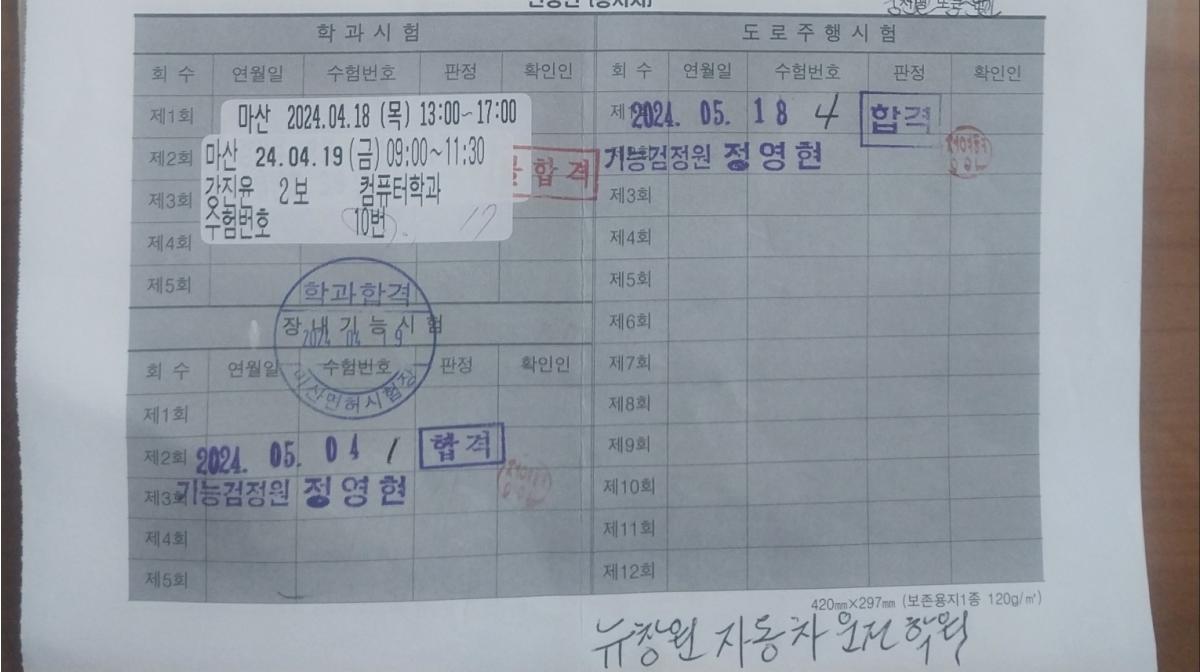 학과시험
도로주행시험
회수 연월일 수험번호 판정 확인인
회수 연월일 수험번호 판정 확인인
제1회
마산 2024.04.18 (목) 13:00~17:00
제2회
마산 24.04.19 (금) 09:00~11:30
제3회
강진윤 2보 컴퓨터학과
수험번호 10번 17
불합격
제4회
제5회
학과합격
2024 04 19
마산면허시험장
장내기능시험
회수 연월일 수험번호 판정 확인인
제1회
제2회 2024. 05. 04 1 합격
제3회 기능검정원 정영현
제4회
제5회
제1회 2024. 05. 18 4 합격
기능검정원 정영현
제3회
제4회
제5회
제6회
제7회
제8회
제9회
제10회
제11회
제12회
420㎜×297㎜ (보존용지1종 120g/㎡)
뉴창원 자동차 운전 학원